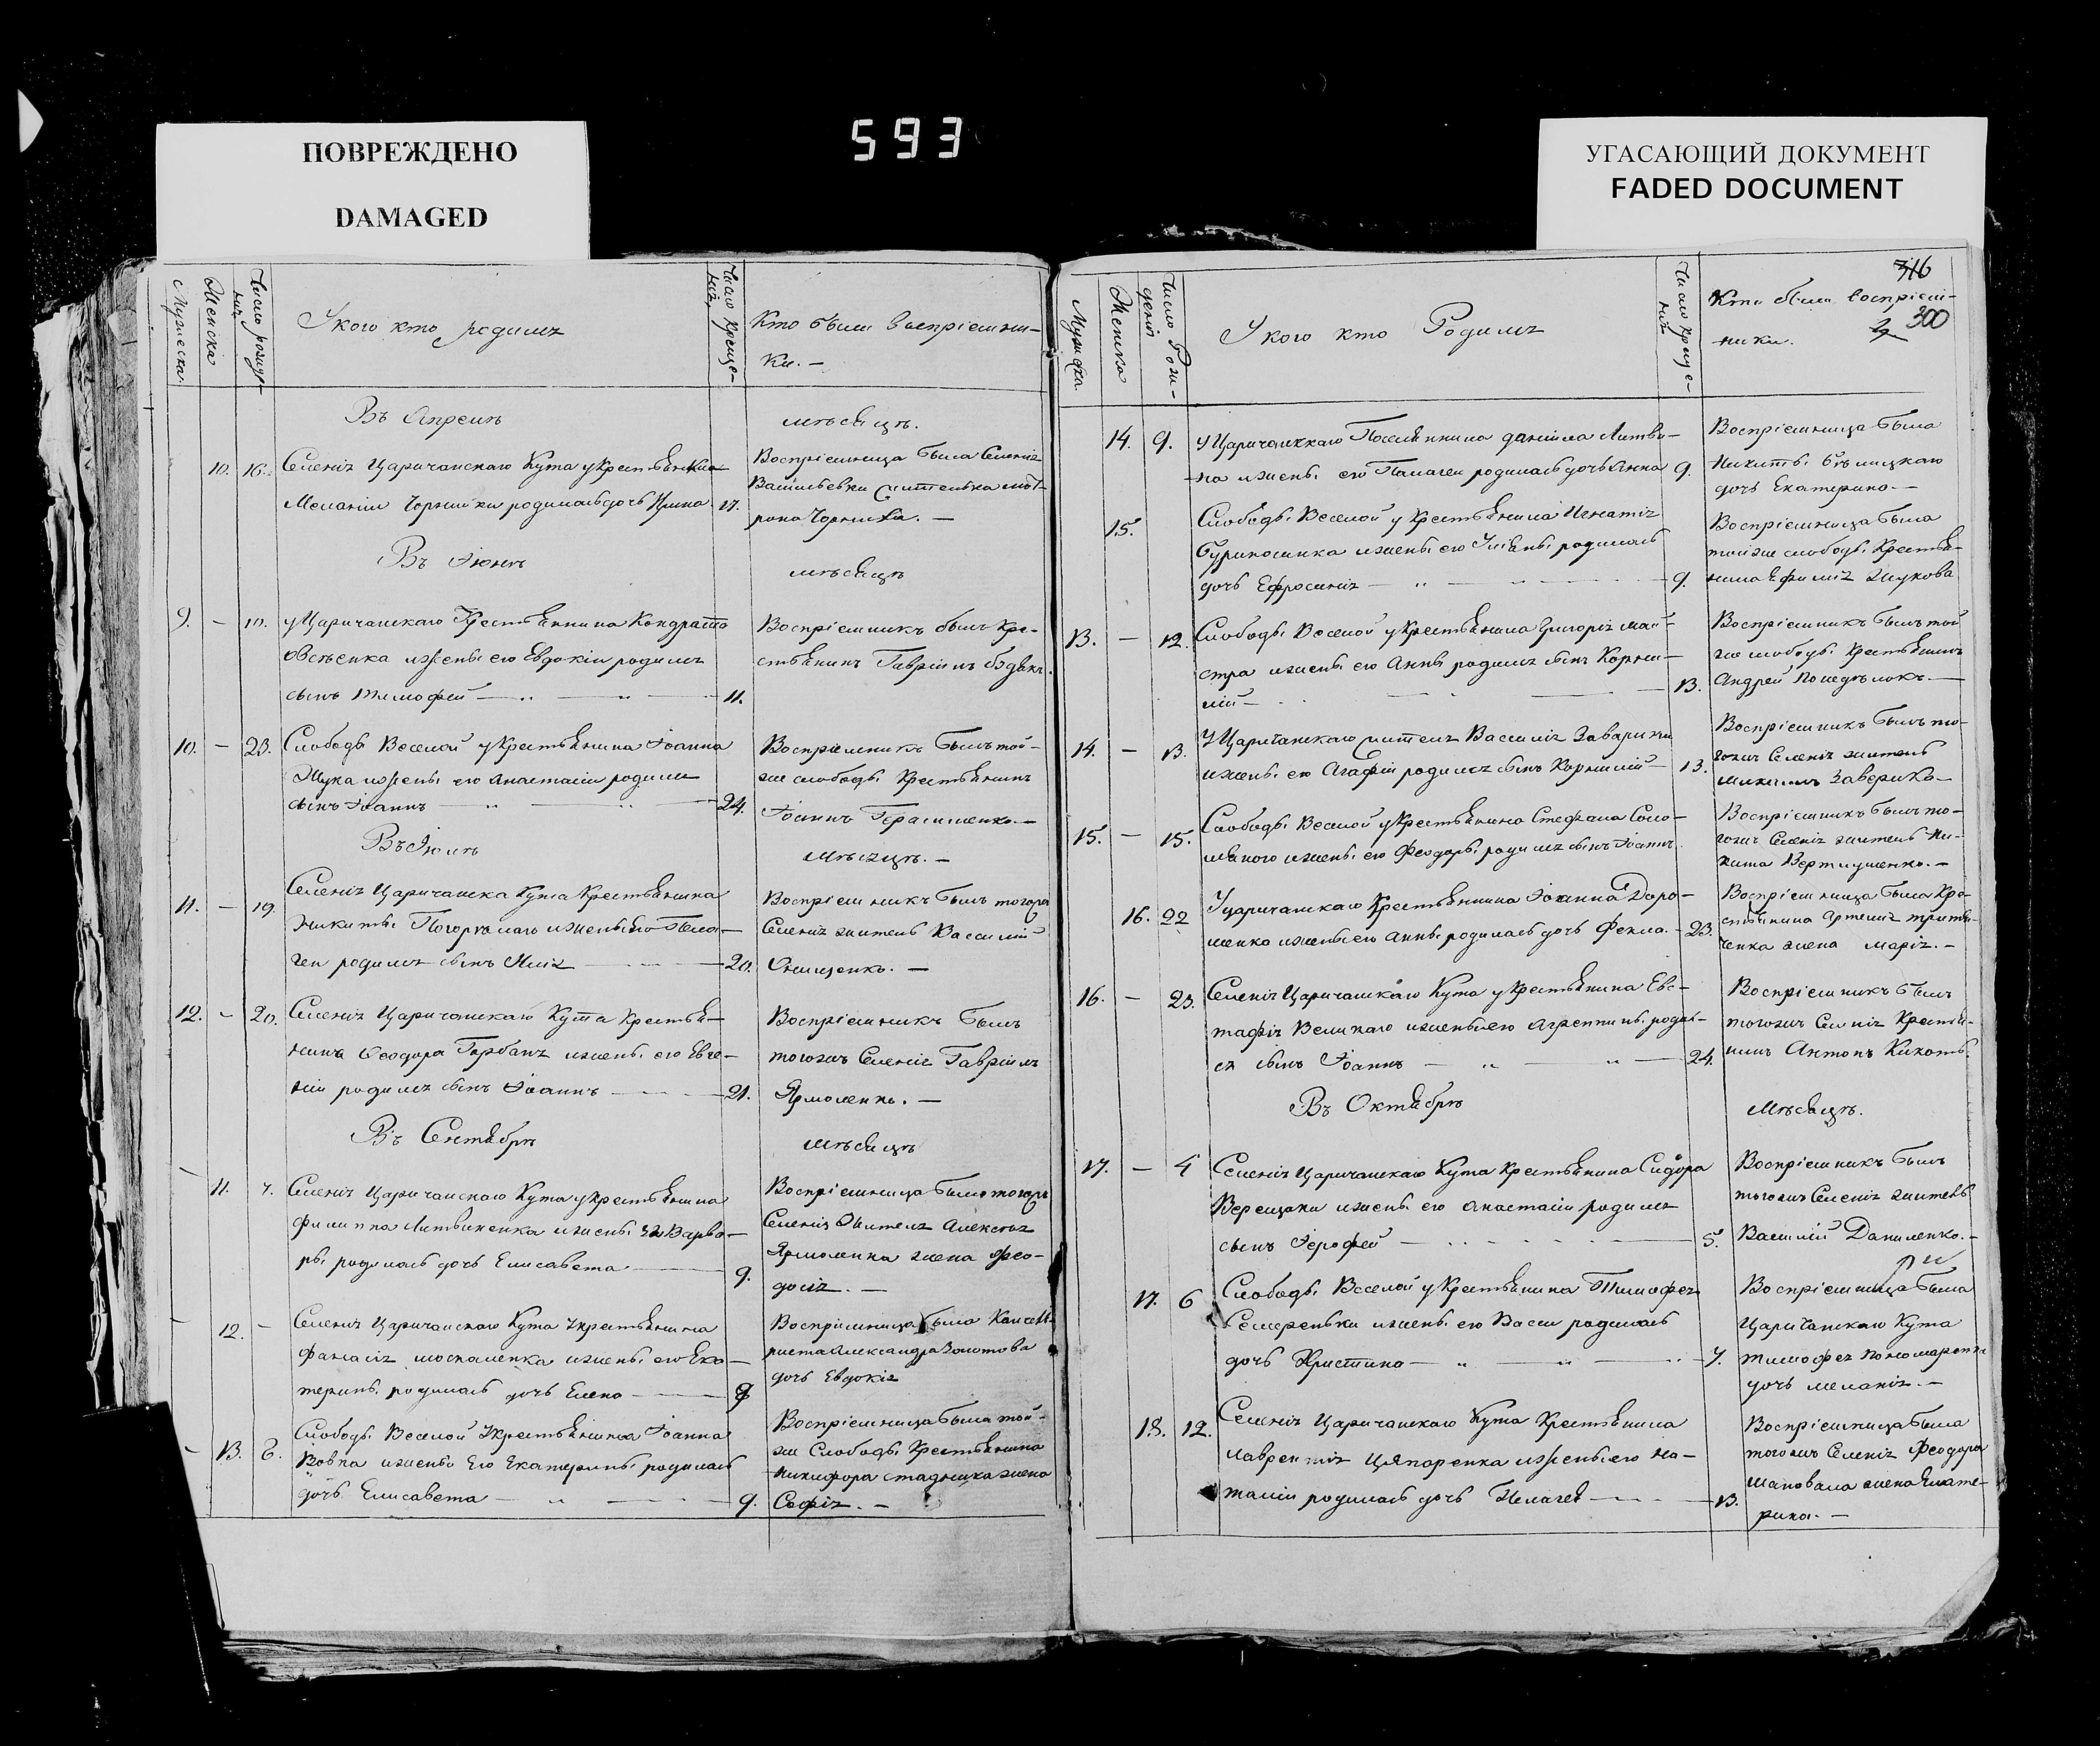 ПОВРЕЖДЕНО
DAMAGED
593
УГАСАЮЩИЙ ДОКУМЕНТ
FADED DOCUMENT
Мужеска
Женска
Число рожде-
нія
У кого кто родился
Число креще-
нія
Кто были воспріемни-
ки. —
Въ Апрелѣ
мѣсяцѣ.
10. 16. Селенія Царичанскаго Кута у крестьянина
Меланіи родилась дочь Ирина. 17.
Воспріемница была Селенія
Васильевки
Въ Іюнѣ
мѣсяцѣ
9. — 10. у Царичанскаго Крестьянина Кондрата
Овсѣенка жены его Евдокіи родился
сынъ Тимофей — 11.
Воспріемникъ былъ Кре-
стьянинъ Гавріилъ
10. — 23. Слободы Веселой у крестьянина Іоанна
Жука изъ жены его Анастасіи родился
сынъ Іоаннъ — 24.
Воспріемникъ былъ той-
же слободы Крестьянинъ
Іоаннъ Герасименко. —
Въ Іюлѣ
мѣсяцѣ. —
11. — 19. Селенія Царичанска Кута Крестьянина
Никиты изъ жены его Пела-
геи родился сынъ Илія — 20.
Воспріемникъ былъ того же
Селенія житель Василій
Онищенко. —
12. — 20. Селенія Царичанскаго Кута Крестья-
нина Феодора Горбаня изъ жены его Евге-
ніи родился сынъ Іоаннъ — 21.
Воспріемникъ былъ
тогожъ Селенія Гавріилъ
Ярмоленко. —
Въ Сентябрѣ
мѣсяцѣ
11. 7. Селенія Царичанскаго Кута у крестьянина
Филиппа Литвиненка изъ жены его Варва-
ры родилась дочь Елисавета — 9.
Воспріемница была того же
Селенія жителя Алексѣя
Ярмоленка жена Фео-
досія. —
12. — Селенія Царичанскаго Кута У крестьянина
Фанасія москаленка изъ жены его Ека-
терины родилась дочь Елена — 9
Воспріемница была Канселя-
риста Александра Золотова
дочь Евдокія
— 13. 8. Слободы Веселой У крестьянина Іоанна
Вовка изъ жены Его Екатерины родилась
дочь Елисавета — 9.
Воспріемница была той-
же Слободы Крестьянина
Никифора стадника жена
Софія. —
316
300
Мужеска
Женска
Число Рож-
денія
У кого кто Родился
Число Креще-
нія
Кто были воспріем-
ники.
14. 9. у Царичанскаго Поселянина Даніила Литви-
на изъ жены его Палагеи родилась дочь Анна 9.
Воспріемница была
Никиты Бѣлицкаго
дочь Екатерина. —
15. Слободы Веселой у Крестьянина Игнатія
изъ жены его Уліяны родилась
дочь Ефросинія — 9.
Воспріемница была
тойже слободы Крестья-
нина Ефимія Жукова
13. — 12. Слободы Веселой у Крестьянина Григорія май-
стра изъ жены его Анны родился сынъ Корни-
лій — 13.
Воспріемникъ былъ той
же слободы Крестьянинъ
Андрей Понедѣлокъ. —
14. — 13. У Царичанскаго жителя Василія Заварики
изъ жены его Агафіи родился сынъ Корнилій — 13.
Воспріемникъ былъ то-
гожъ Селенія житель
Михаилъ Заверико —
15. — 15. Слободы Веселой у Крестьянина Стефана Соло-
мянаго изъ жены его Феодоры родился сынъ Іоаннъ.
Воспріемникъ былъ то-
гожъ Селенія житель Ни-
кита —
16. 22 У царичанскаго Крестьянина Іоанна Доро-
шенка изъ жены его Анны родилась дочь Фекла. — 23.
Воспріемница была Кре-
стьянина Артемія
жена Марія. —
16. — 23. Селенія Царичанскаго Кута у Крестьянина Евс-
тафія Великаго изъ жены его Агрепины родил-
ся сынъ Іоаннъ — 24.
Воспріемникъ былъ
тогожъ Селенія Крестья-
нинъ Антонъ Кикоть.
Въ Октябрѣ
мѣсяцѣ.
17. — 4 Селенія Царичанскаго Кута Крестьянина Сидора
Верещаки изъ жены его Анастасіи родился
сынъ Іерофей — 5.
Воспріемникъ былъ
тогожъ Селенія житель
Василій Даниленко. —
17. 6 Слободы Веселой у Крестьянина Тимофея
Семеренька изъ жены его Васы родилась
дочь Христина — 7.
Воспріемница была
Царичанскаго Кута
Тимофея Пономаренка
дочь Меланія. —
18. 12. Селенія Царичанскаго Кута Крестьянина
Лаврентія Цяпаренка изъ жены его На-
таліи родилась дочь Пелагея — 13.
Воспріемница была
тогожъ Селенія Феодора
Шаповала жена Екате-
рина. —